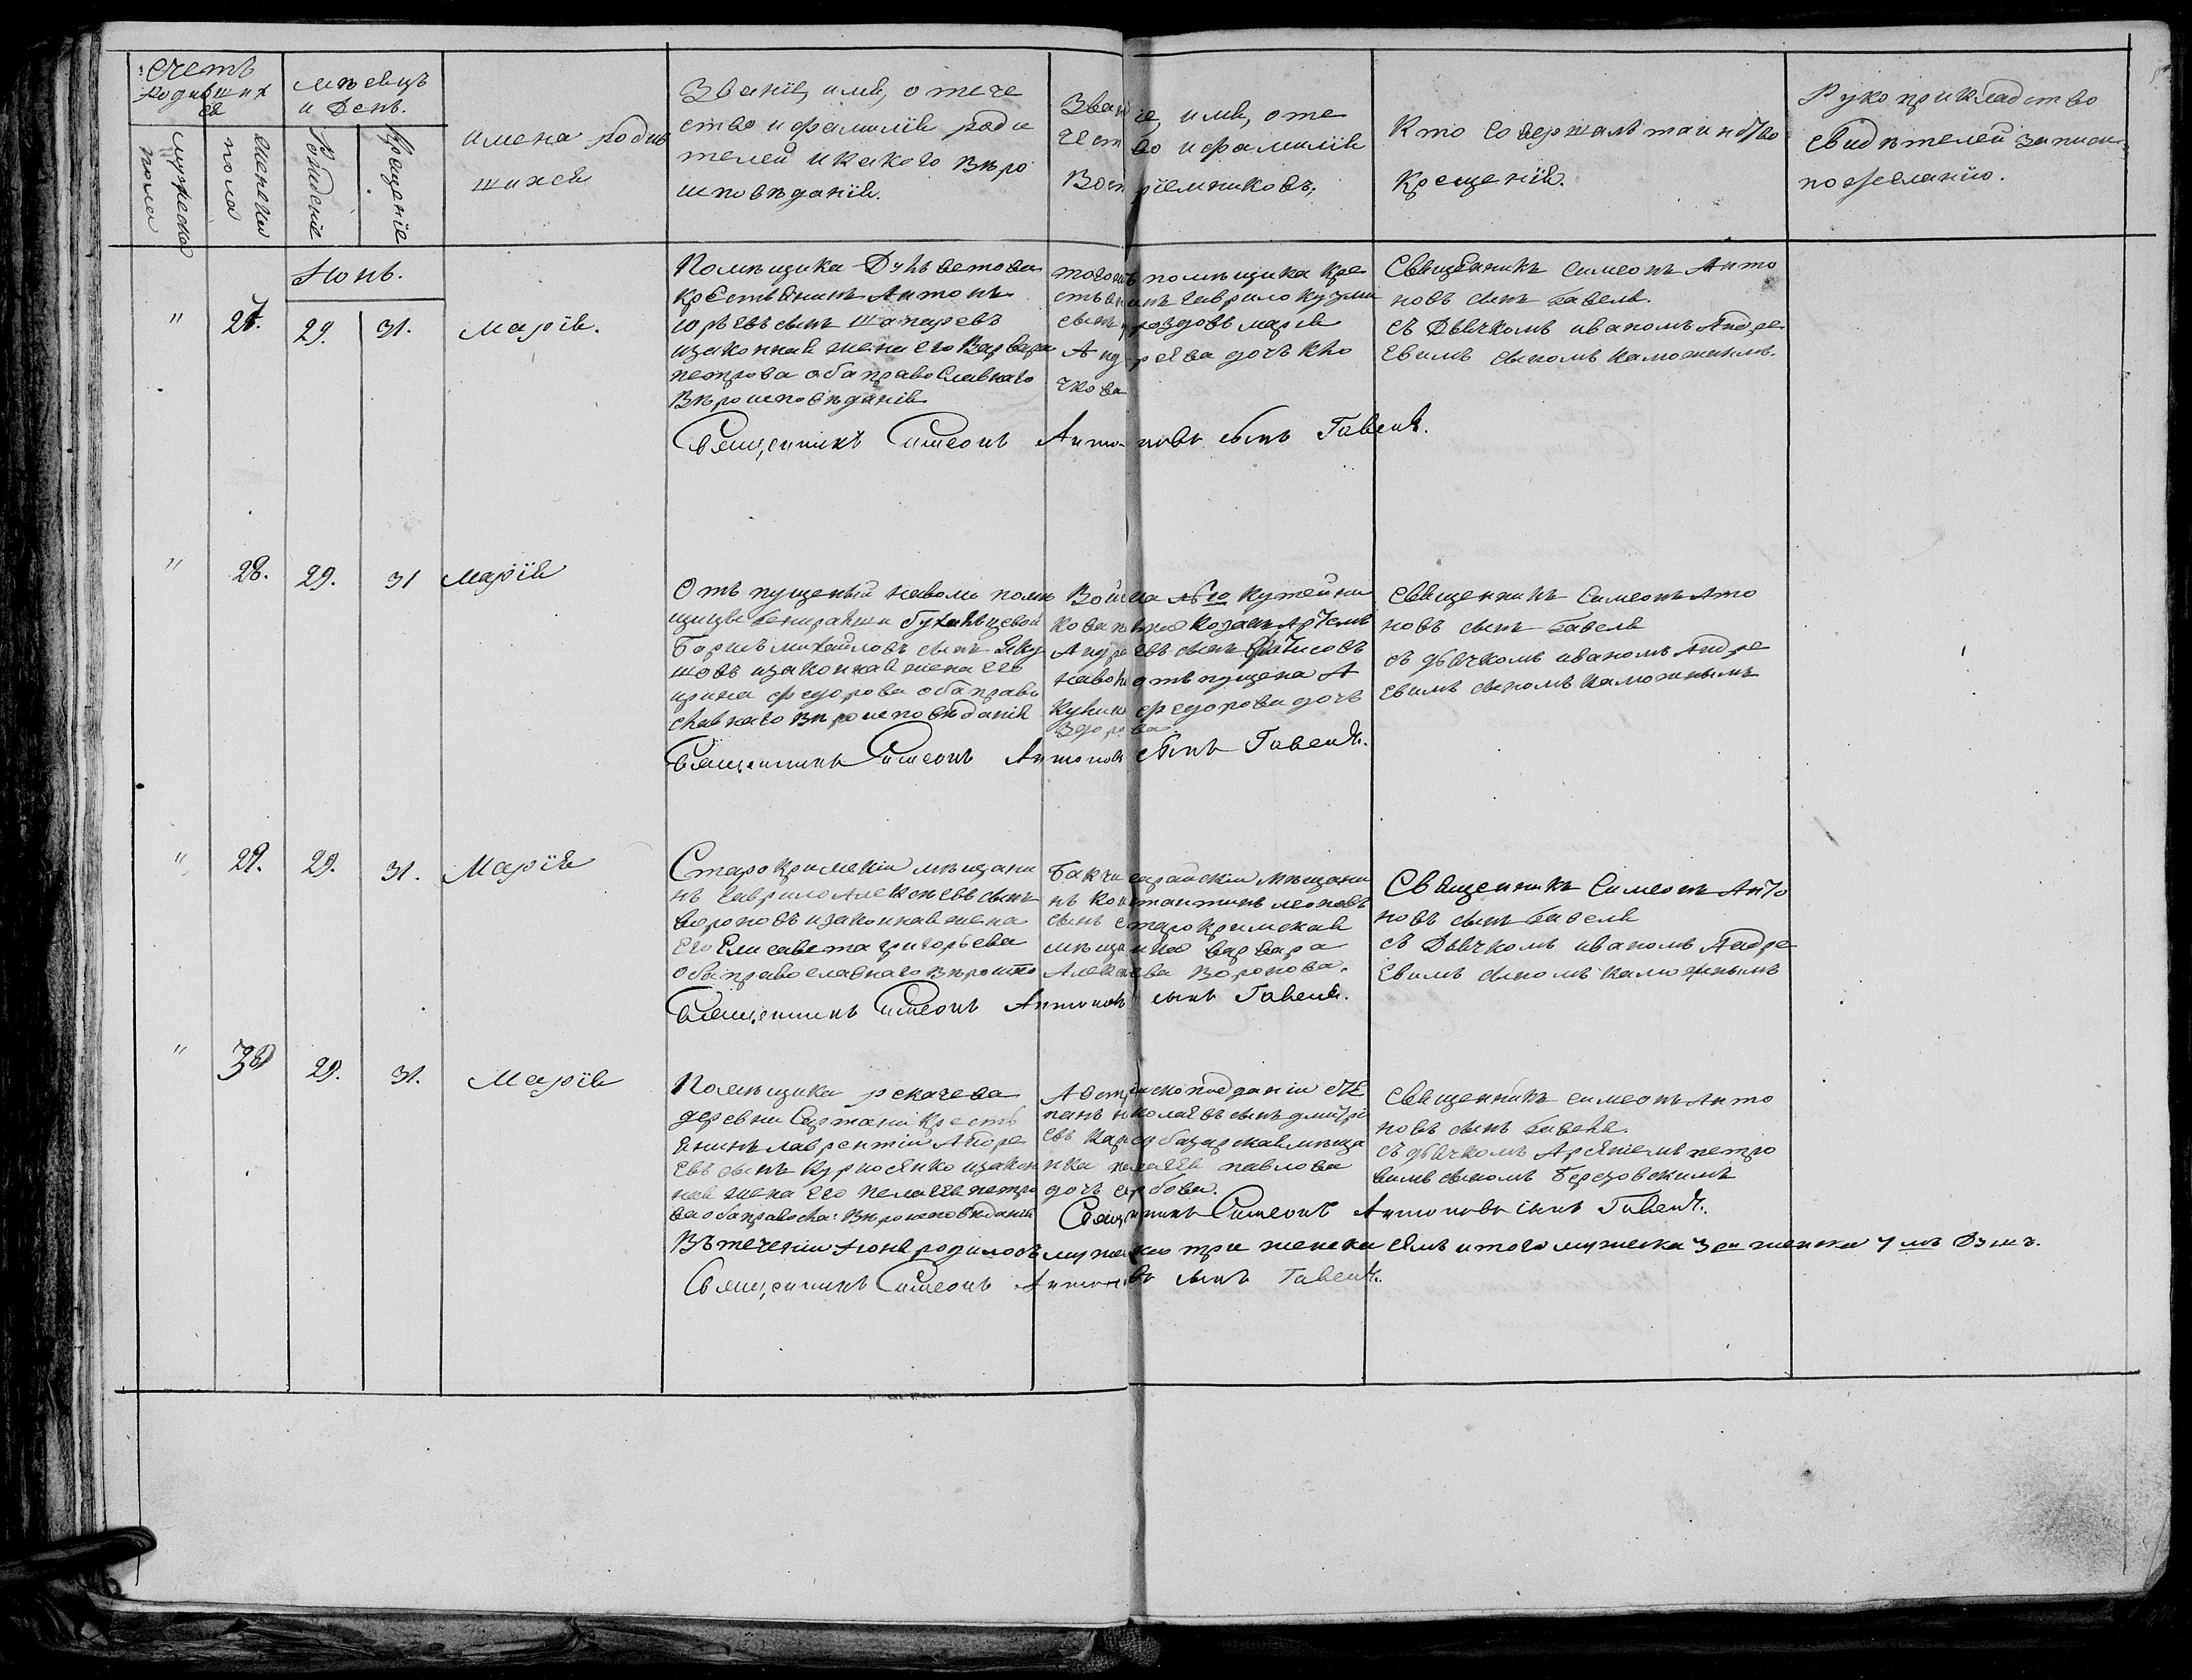 Счетъ
родивших
ся
мѣсяцъ
и День.
мужеска
пола
женска
пола
Рожденіе
Крещеніе
имена родив
шихся
Званіе, имя, отече
ство и фамилія роди
телей и какого вѣро
исповѣданія.
Званіе, имя, оте
чество и фамилія
Воспріемниковъ,
Кто совершалъ таинство
крещенія.
Рукоприкладство
свидѣтелей записи
по желанію.
Іюнь.
" 27. 29. 31. Марія.
Помѣщика
крестьянинъ Антонъ
юрьевъ сынъ Шапаревъ
изаконная жена его Варвара
петрова оба православнаго
Вѣроисповѣданія
тогожъ помѣщика кре
стьянинъ гаврило кузми
сынъ Дроздовъ марія
Андреева дочь Клю
чкова
Священникъ Симеонъ Анто
новъ сынъ Бавеля.
съ Дьячкомъ иваномъ Андре
евимъ сыномъ Калюжнимъ.
Священникъ Симеонъ Антоновъ сынъ Гавеля.
" 28. 29. 31 Марія
Отъ пущеный наволю помѣ
щицы
Борисъ михайловъ сынъ Яку
шовъ изаконная жена его
ирина федорова оба право
славнаго вѣроисповѣданія
Войска № 10 Кутейни
кова полка козакъ Артемъ
Андреевъ сынъ
наволю отъ пущена А
кулина федорова дочь
Здорова.
Священникъ Симеонъ Анто
новъ сынъ Бавеля
съ дьячкомъ иваномъ Андре
евимъ сыномъ калюжнымъ
Священникъ Симеонъ Антоновъ сынъ Гавеля.
" 29. 29. 31. Марія
Старокримскій мѣщани
нъ гаврило Алексѣевъ сынъ
вороновъ изаконная жена
его Елисавета григорьева
оба православнаго вѣроиспо
Бакчисарайскій мѣщани
нъ Константинъ леоновъ
сынъ старокримская
мѣщанка варвара
Алексѣева Воронова.
Священникъ Симеонъ Анто
новъ сынъ Бавеля
съ Дьячкомъ иваномъ Андре
евимъ сыномъ калюжнымъ
Священникъ Симеонъ Антоновъ сынъ Гавеля.
" 30 29. 31. Марія
Помѣщика рекачева
деревни Сартани кресть
янинъ лаврентій Андре
евъ сынъ Курносенко изакон
ная жена его пелагея петро
ва оба правосла: вѣроисповѣданія
Австрійско подданій сте
панъ николаевъ сынъ дмитрі
евъ Карасубазарская мѣща
нка пелагея павлова
дочь сербова.
Священникъ симеонъ Анто
новъ сынъ Бавеля.
съ дьячкомъ Арсеніемъ петро
вимъ сыномъ Березовскимъ
Священникъ Симеонъ Антоновъ сынъ Гавеля.
Въ теченіи Іюня родилось мужеска три женска семь итого мужеска 3 ри женска 7 мь Душъ.
Священникъ Симеонъ Антоновъ сынъ Гавеля.